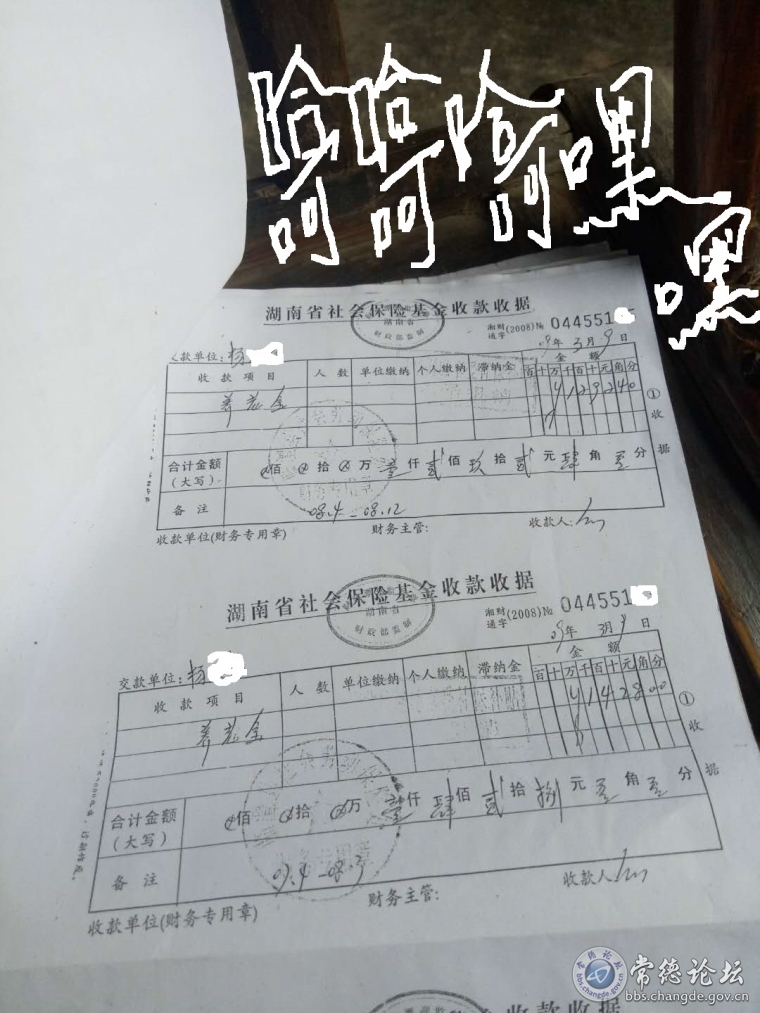 哈哈哈
呵呵呵嘿
嘿
湖南省社会保险基金收款收据
湖南省
财政部监制
湘财通字(2008)№ 044551
09年3月9日
交款单位:杨
收款项目 人数 单位缴纳 个人缴纳 滞纳金 金额
百十万千百十元角分
养老金 ¥129240
合计金额(大写) 佰 拾 万 壹仟贰佰玖拾贰元肆角 分
财务专用章
备注 08.4-08.12
收款单位(财务专用章) 财务主管: 收款人:
① 收据
湖南省社会保险基金收款收据
湖南省
财政部监制
湘财通字(2008)№ 044551
09年3月9日
交款单位:杨
收款项目 人数 单位缴纳 个人缴纳 滞纳金 金额
百十万千百十元角分
养老金 ¥142800
合计金额(大写) 佰 拾 万 壹仟肆佰贰拾捌元 角 分
财务专用章
备注 07.4-08.3
收款单位(财务专用章) 财务主管: 收款人
① 收据
收款收据
常德论坛
bbs.changde.gov.cn